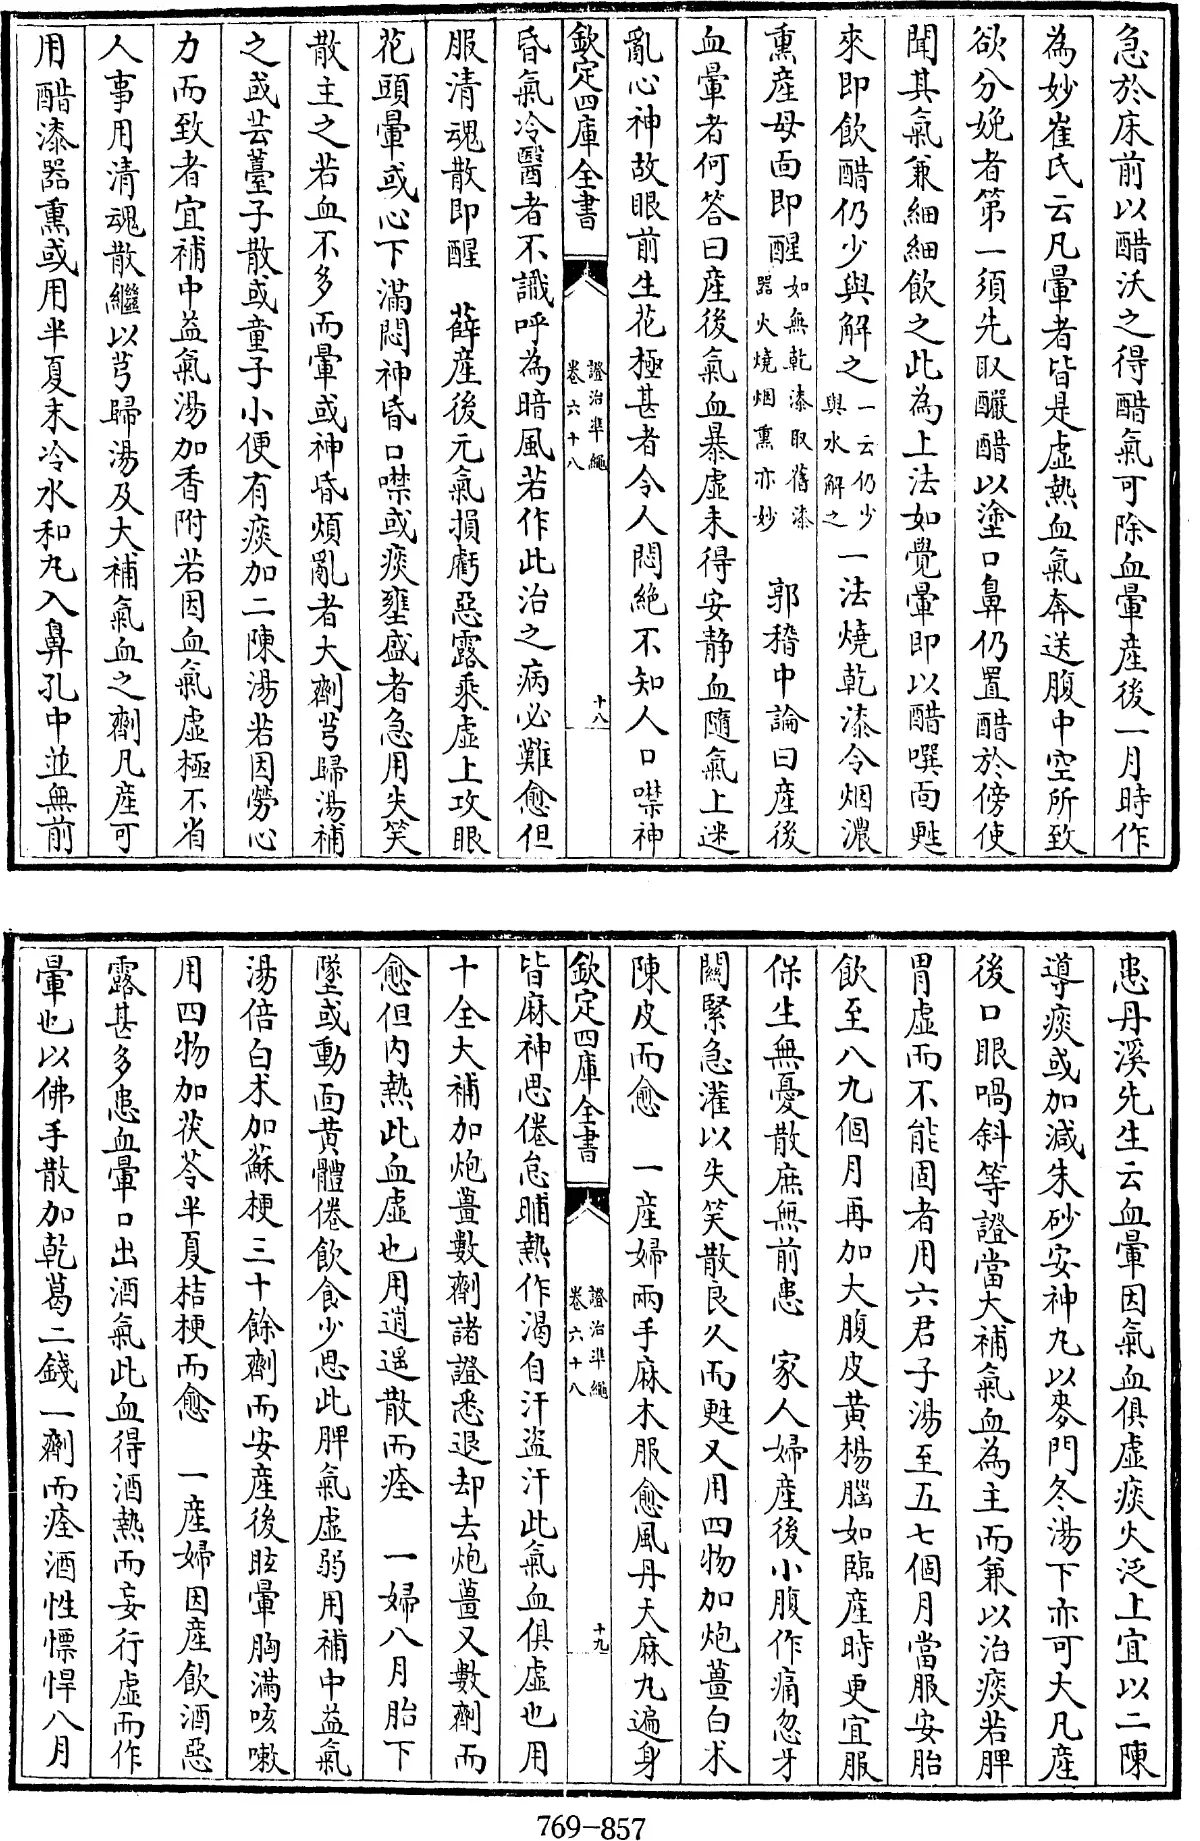 急於床前以醋沃之得醋氣可除血暈産後一月時作
為妙崔氏云凡暈者皆是虛熱血氣奔送腹中空所致
欲分娩者第一須先取釅醋以塗口鼻仍置醋於傍使
聞其氣兼細細飲之此為上法如覺暈即以醋噀面甦
來即飲醋仍少與解之一云仍少與水解之一法燒乾漆令烟濃
熏産母面即醒如無乾漆取舊漆器火燒烟熏亦妙 郭稽中論曰産後
血暈者何答曰産後氣血暴虛未得安静血隨氣上迷
亂心神故眼前生花極甚者令人悶絶不知人口噤神
欽定四庫全書 證治準繩 卷六十八 十八
昏氣冷醫者不識呼為暗風若作此治之病必難愈但
服清魂散即醒 薛産後元氣損虧惡露乘虛上攻眼
花頭暈或心下滿悶神昏口噤或痰壅盛者急用失笑
散主之若血不多而暈或神昏煩亂者大劑芎歸湯補
之或芸薹子散或童子小便有痰加二陳湯若因勞心
力而致者宜補中益氣湯加香附若因血氣虛極不省
人事用清魂散繼以芎歸湯及大補氣血之劑凡産可
用醋漆器熏或用半夏末冷水和丸入鼻孔中並無前
患丹溪先生云血暈因氣血俱虛痰火泛上宜以二陳
導痰或加減朱砂安神丸以麥門冬湯下亦可大凡産
後口眼喎斜等證當大補氣血為主而兼以治痰若脾
胃虛而不能固者用六君子湯至五七個月當服安胎
飲至八九個月再加大腹皮黄楊腦如臨産時更宜服
保生無憂散庶無前患 家人婦産後小腹作痛忽牙
關緊急灌以失笑散良久而甦又用四物加炮薑白术
陳皮而愈 一産婦兩手麻木服愈風丹天麻丸遍身
欽定四庫全書 證治準繩 卷六十八 十九
皆麻神思倦怠晡熱作渴自汗盜汗此氣血俱虛也用
十全大補加炮薑數劑諸證悉退却去炮薑又數劑而
愈但内熱此血虛也用逍遥散而痊 一婦八月胎下
墜或動面黄體倦飲食少思此脾氣虛弱用補中益氣
湯倍白术加蘇梗三十餘劑而安産後眩暈胸滿咳嗽
用四物加茯苓半夏桔梗而愈 一産婦因産飲酒惡
露甚多患血暈口出酒氣此血得酒熱而妄行虛而作
暈也以佛手散加乾葛二錢一劑而痊酒性慓悍八月
769-857